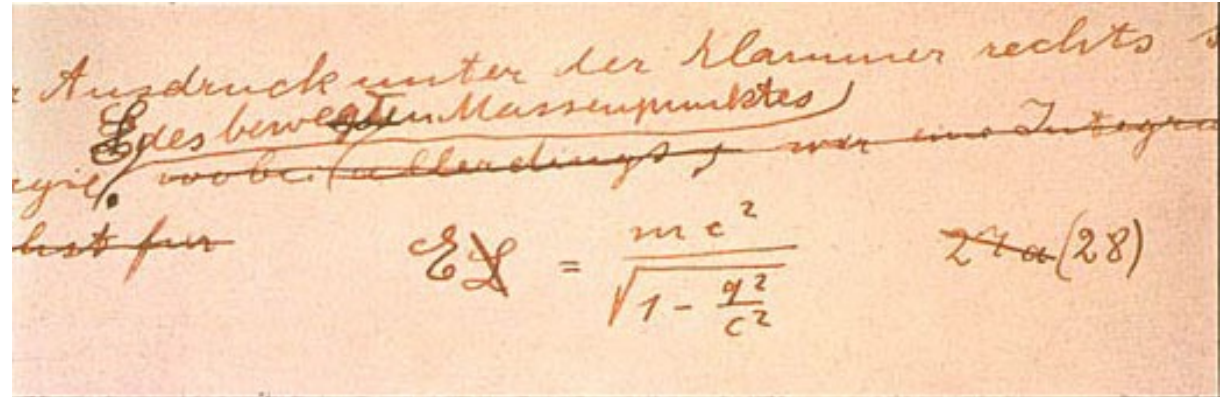 r Ausdruck unter der Klammer rechts s
E des bewegten Massenpunktes
rgie. wobei (allerdings, wir eine Integra
bst für
E L = mc² / √(1 - q²/c²) 27a (28)